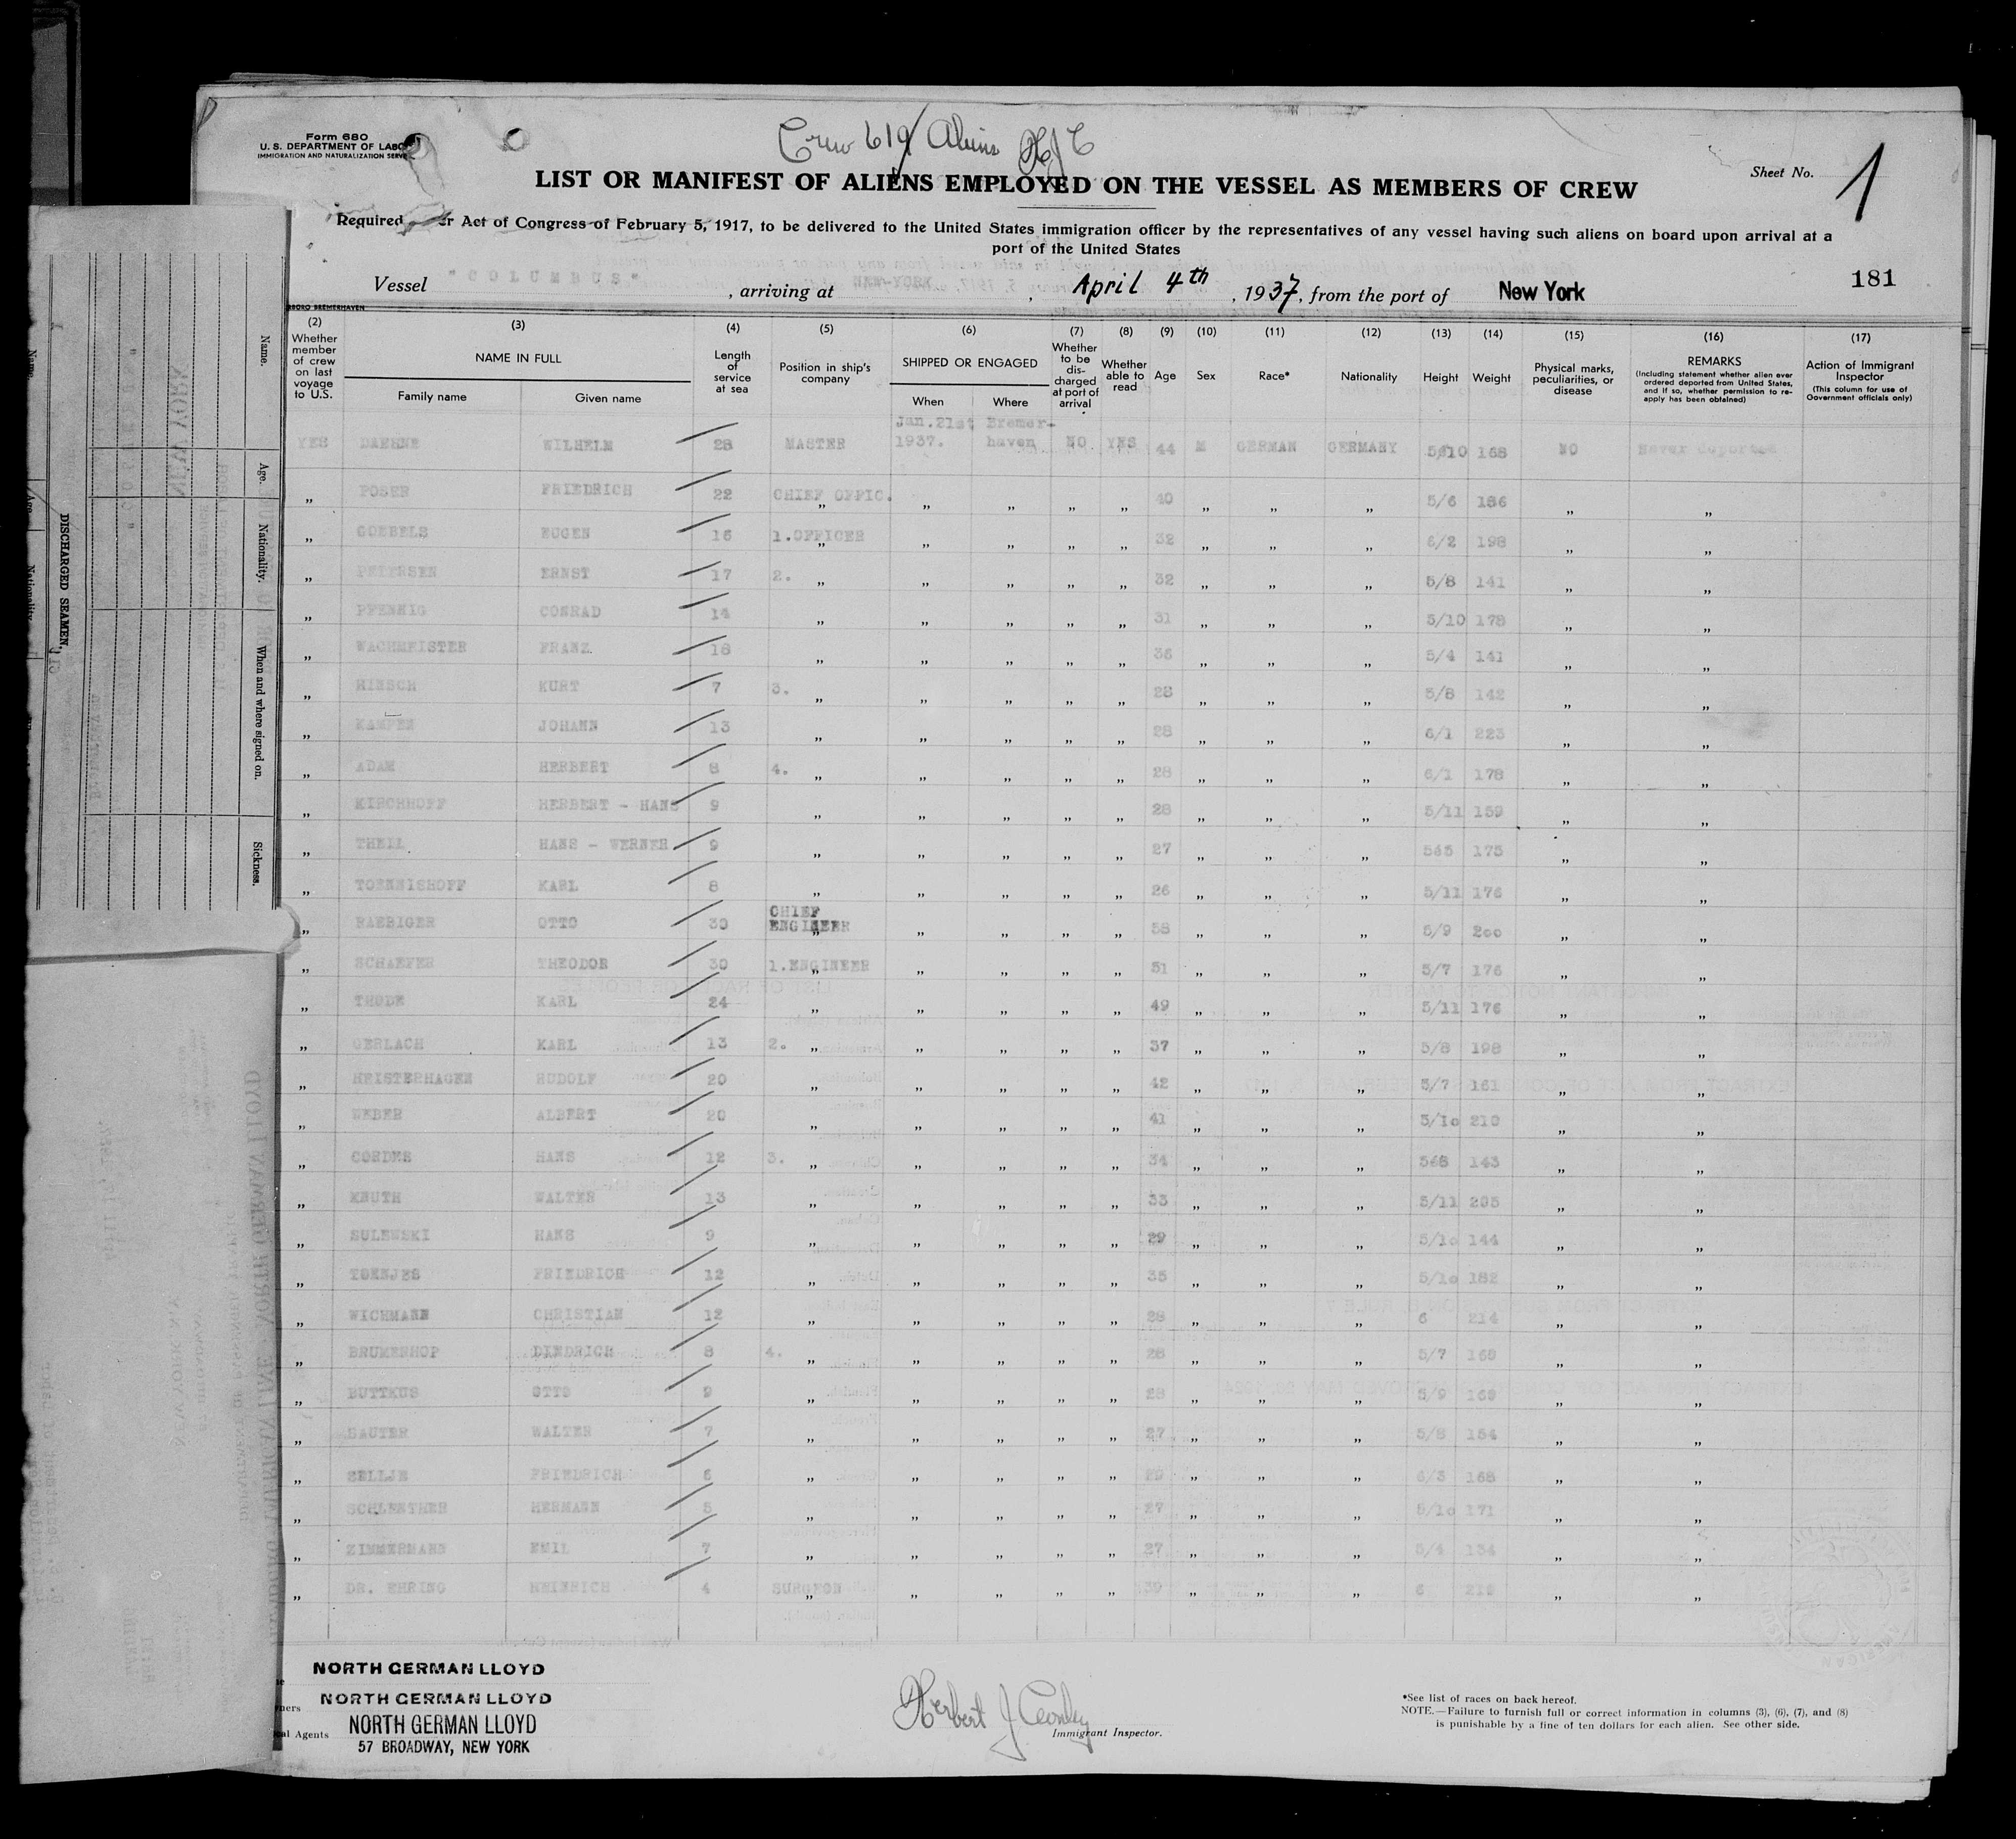 Form 680
U. S. DEPARTMENT OF LABO
IMMIGRATION AND NATURALIZATION SERV
Crew 619 Aliens HJC
LIST OR MANIFEST OF ALIENS EMPLOYED ON THE VESSEL AS MEMBERS OF CREW
Sheet No. 1
Required er Act of Congress of February 5, 1917, to be delivered to the United States immigration officer by the representatives of any vessel having such aliens on board upon arrival at a
port of the United States
Vessel "COLUMBUS", arriving at NEW-YORK, April 4th, 1937, from the port of New York
181
(2) (3) (4) (5) (6) (7) (8) (9) (10) (11) (12) (13) (14) (15) (16) (17)
Whether member of crew on last voyage to U.S. NAME IN FULL Family name Given name Length of service at sea Position in ship's company SHIPPED OR ENGAGED When Where Whether to be discharged at port of arrival Whether able to read Age Sex Race* Nationality Height Weight Physical marks, peculiarities, or disease REMARKS (Including statement whether alien ever ordered deported from United States, and if so, whether permission to re-apply has been obtained) Action of Immigrant Inspector (This column for use of Government officials only)
YES DAEHNE WILHELM 28 MASTER Jan.21st 1937. Bremer-haven NO YES 44 M GERMAN GERMANY 5/10 168 NO Never deported
„ POSER FRIEDRICH 22 CHIEF OFFIC. „ „ „ „ „ 40 „ „ „ 5/6 186 „ „
„ GOEBELS EUGEN 16 1.OFFICER „ „ „ „ „ 32 „ „ „ 6/2 198 „ „
„ PETERSEN ERNST 17 2. „ „ „ „ „ 32 „ „ „ 5/8 141 „ „
„ PFENNIG CONRAD 14 „ „ „ „ „ 31 „ „ „ 5/10 178 „ „
„ WACHMEISTER FRANZ 18 „ „ „ „ „ 36 „ „ „ 5/4 141 „ „
„ HINSCH KURT 7 3. „ „ „ „ „ 28 „ „ „ 5/8 142 „ „
„ KAMPEN JOHANN 13 „ „ „ „ „ 28 „ „ „ 6/1 223 „ „
„ ADAM HERBERT 8 4. „ „ „ „ „ 28 „ „ „ 6/1 178 „ „
„ KIRCHHOFF HERBERT - HANS 9 „ „ „ „ „ 28 „ „ „ 5/11 159 „ „
„ THEIL HANS - WERNER 9 „ „ „ „ „ 27 „ „ „ 565 175 „ „
„ TOENNISHOFF KARL 8 „ „ „ „ „ 26 „ „ „ 5/11 176 „ „
„ RAEBIGER OTTO 30 CHIEF ENGINEER „ „ „ „ „ 58 „ „ „ 5/9 200 „ „
„ SCHAEFER THEODOR 30 1.ENGINEER „ „ „ „ „ 51 „ „ „ 5/7 176 „ „
„ THODE KARL 24 „ „ „ „ „ 49 „ „ „ 5/11 176 „ „
„ GERLACH KARL 13 2. „ „ „ „ „ 37 „ „ „ 5/8 198 „ „
„ HEISTERHAGEN RUDOLF 20 „ „ „ „ „ 42 „ „ „ 5/7 161 „ „
„ WEBER ALBERT 20 „ „ „ „ „ 41 „ „ „ 5/10 210 „ „
„ CORDES HANS 12 3. „ „ „ „ „ 34 „ „ „ 568 143 „ „
„ KNUTH WALTER 13 „ „ „ „ „ 33 „ „ „ 5/11 205 „ „
„ SULEWSKI HANS 9 „ „ „ „ „ 29 „ „ „ 5/10 144 „ „
„ TOENJES FRIEDRICH 12 „ „ „ „ „ 35 „ „ „ 5/10 182 „ „
„ WICHMANN CHRISTIAN 12 „ „ „ „ „ 28 „ „ „ 6 214 „ „
„ BRUMSHOP DIEDRICH 8 4. „ „ „ „ „ 28 „ „ „ 5/7 160 „ „
„ BUTTKUS OTTO 9 „ „ „ „ „ 28 „ „ „ 5/9 160 „ „
„ SAUTER WALTER 7 „ „ „ „ „ 27 „ „ „ 5/8 154 „ „
„ SELLJE FRIEDRICH 6 „ „ „ „ „ „ „ „ 6/3 168 „ „
„ HERMANN 5 „ „ „ „ „ 27 „ „ „ 5/10 171 „ „
„ ZIMMERMANN EMIL 7 „ „ „ „ „ 27 „ „ „ 5/4 134 „ „
„ DR. EHRING HEINRICH 4 SURGEON „ „ „ „ „ 39 „ „ „ 6 „ „
NORTH GERMAN LLOYD
NORTH GERMAN LLOYD
al Agents NORTH GERMAN LLOYD
57 BROADWAY, NEW YORK
Herbert J
Immigrant Inspector.
*See list of races on back hereof.
NOTE.—Failure to furnish full or correct information in columns (3), (6), (7), and (8)
is punishable by a fine of ten dollars for each alien. See other side.
DISCHARGED SEAMEN,
Name.
Age.
Nationality.
When and where signed on.
Sickness.